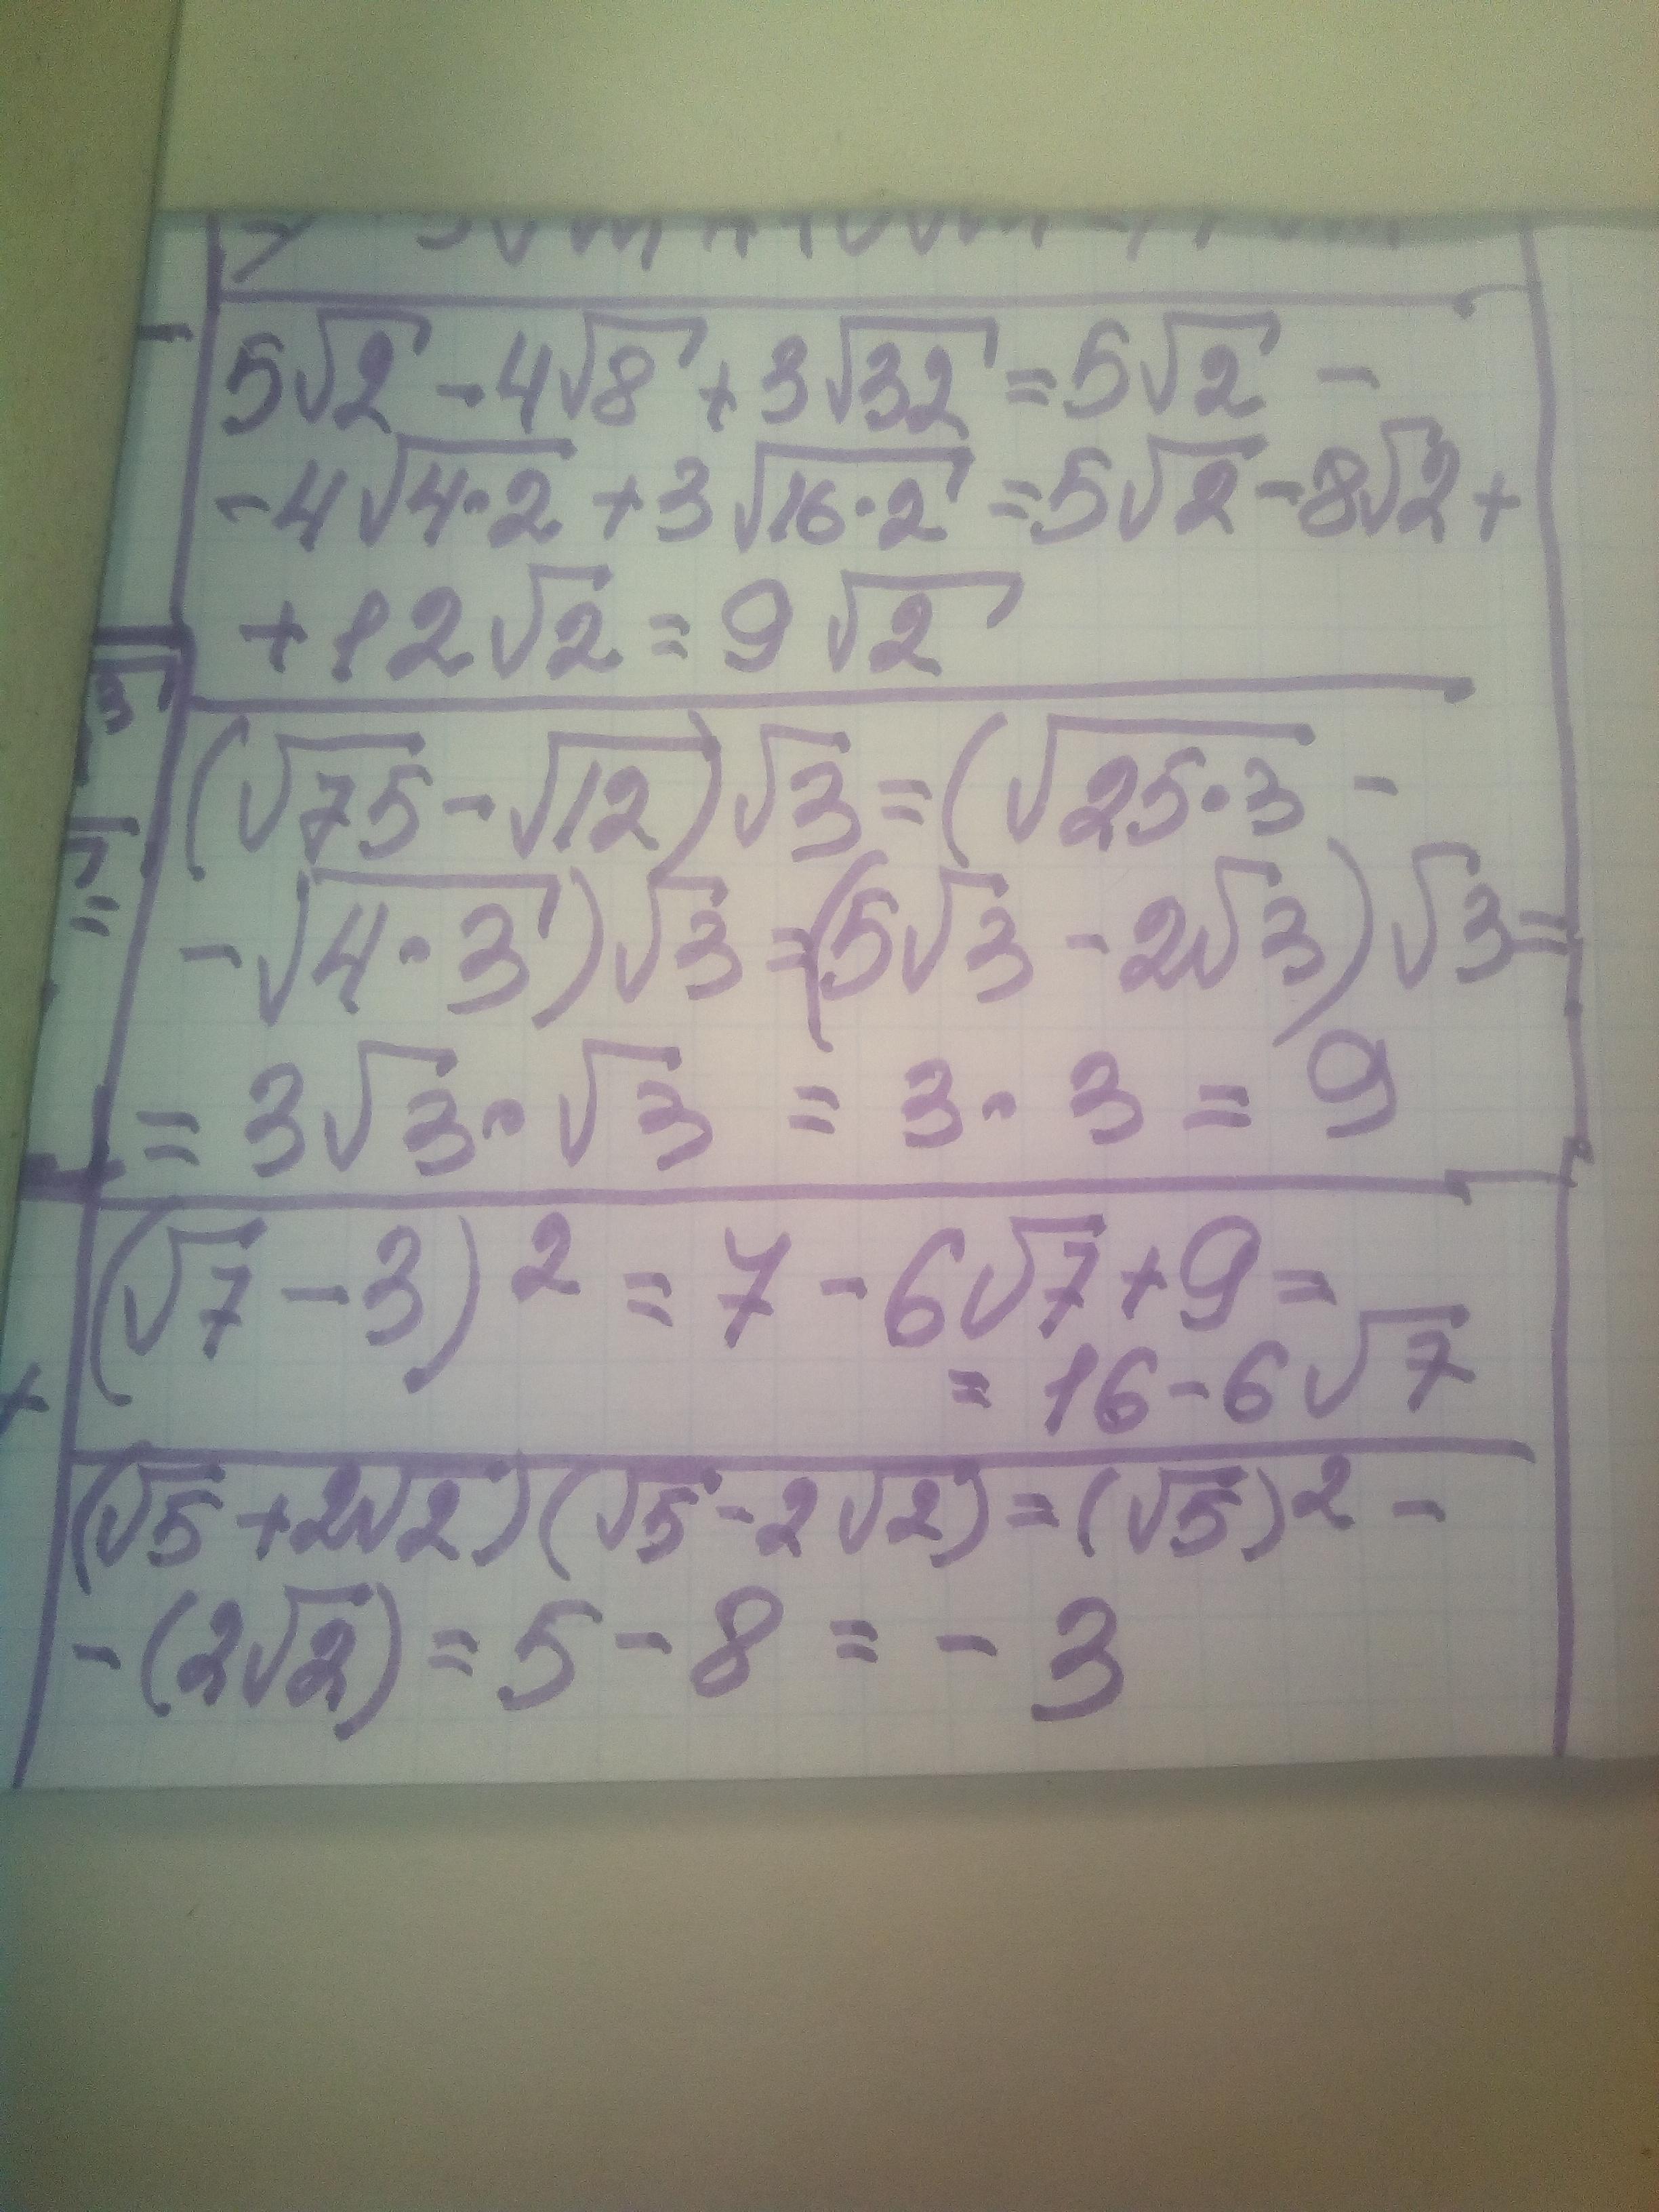 5√2 - 4√8 + 3√32 = 5√2 -
- 4√4·2 + 3√16·2 = 5√2 - 8√2 +
+ 12√2 = 9√2
(√75 - √12)√3 = (√25·3 -
- √4·3)√3 = (5√3 - 2√3)√3 =
= 3√3·√3 = 3·3 = 9
(√7 - 3)² = 7 - 6√7 + 9 =
= 16 - 6√7
(√5 + 2√2)(√5 - 2√2) = (√5)² -
- (2√2) = 5 - 8 = - 3